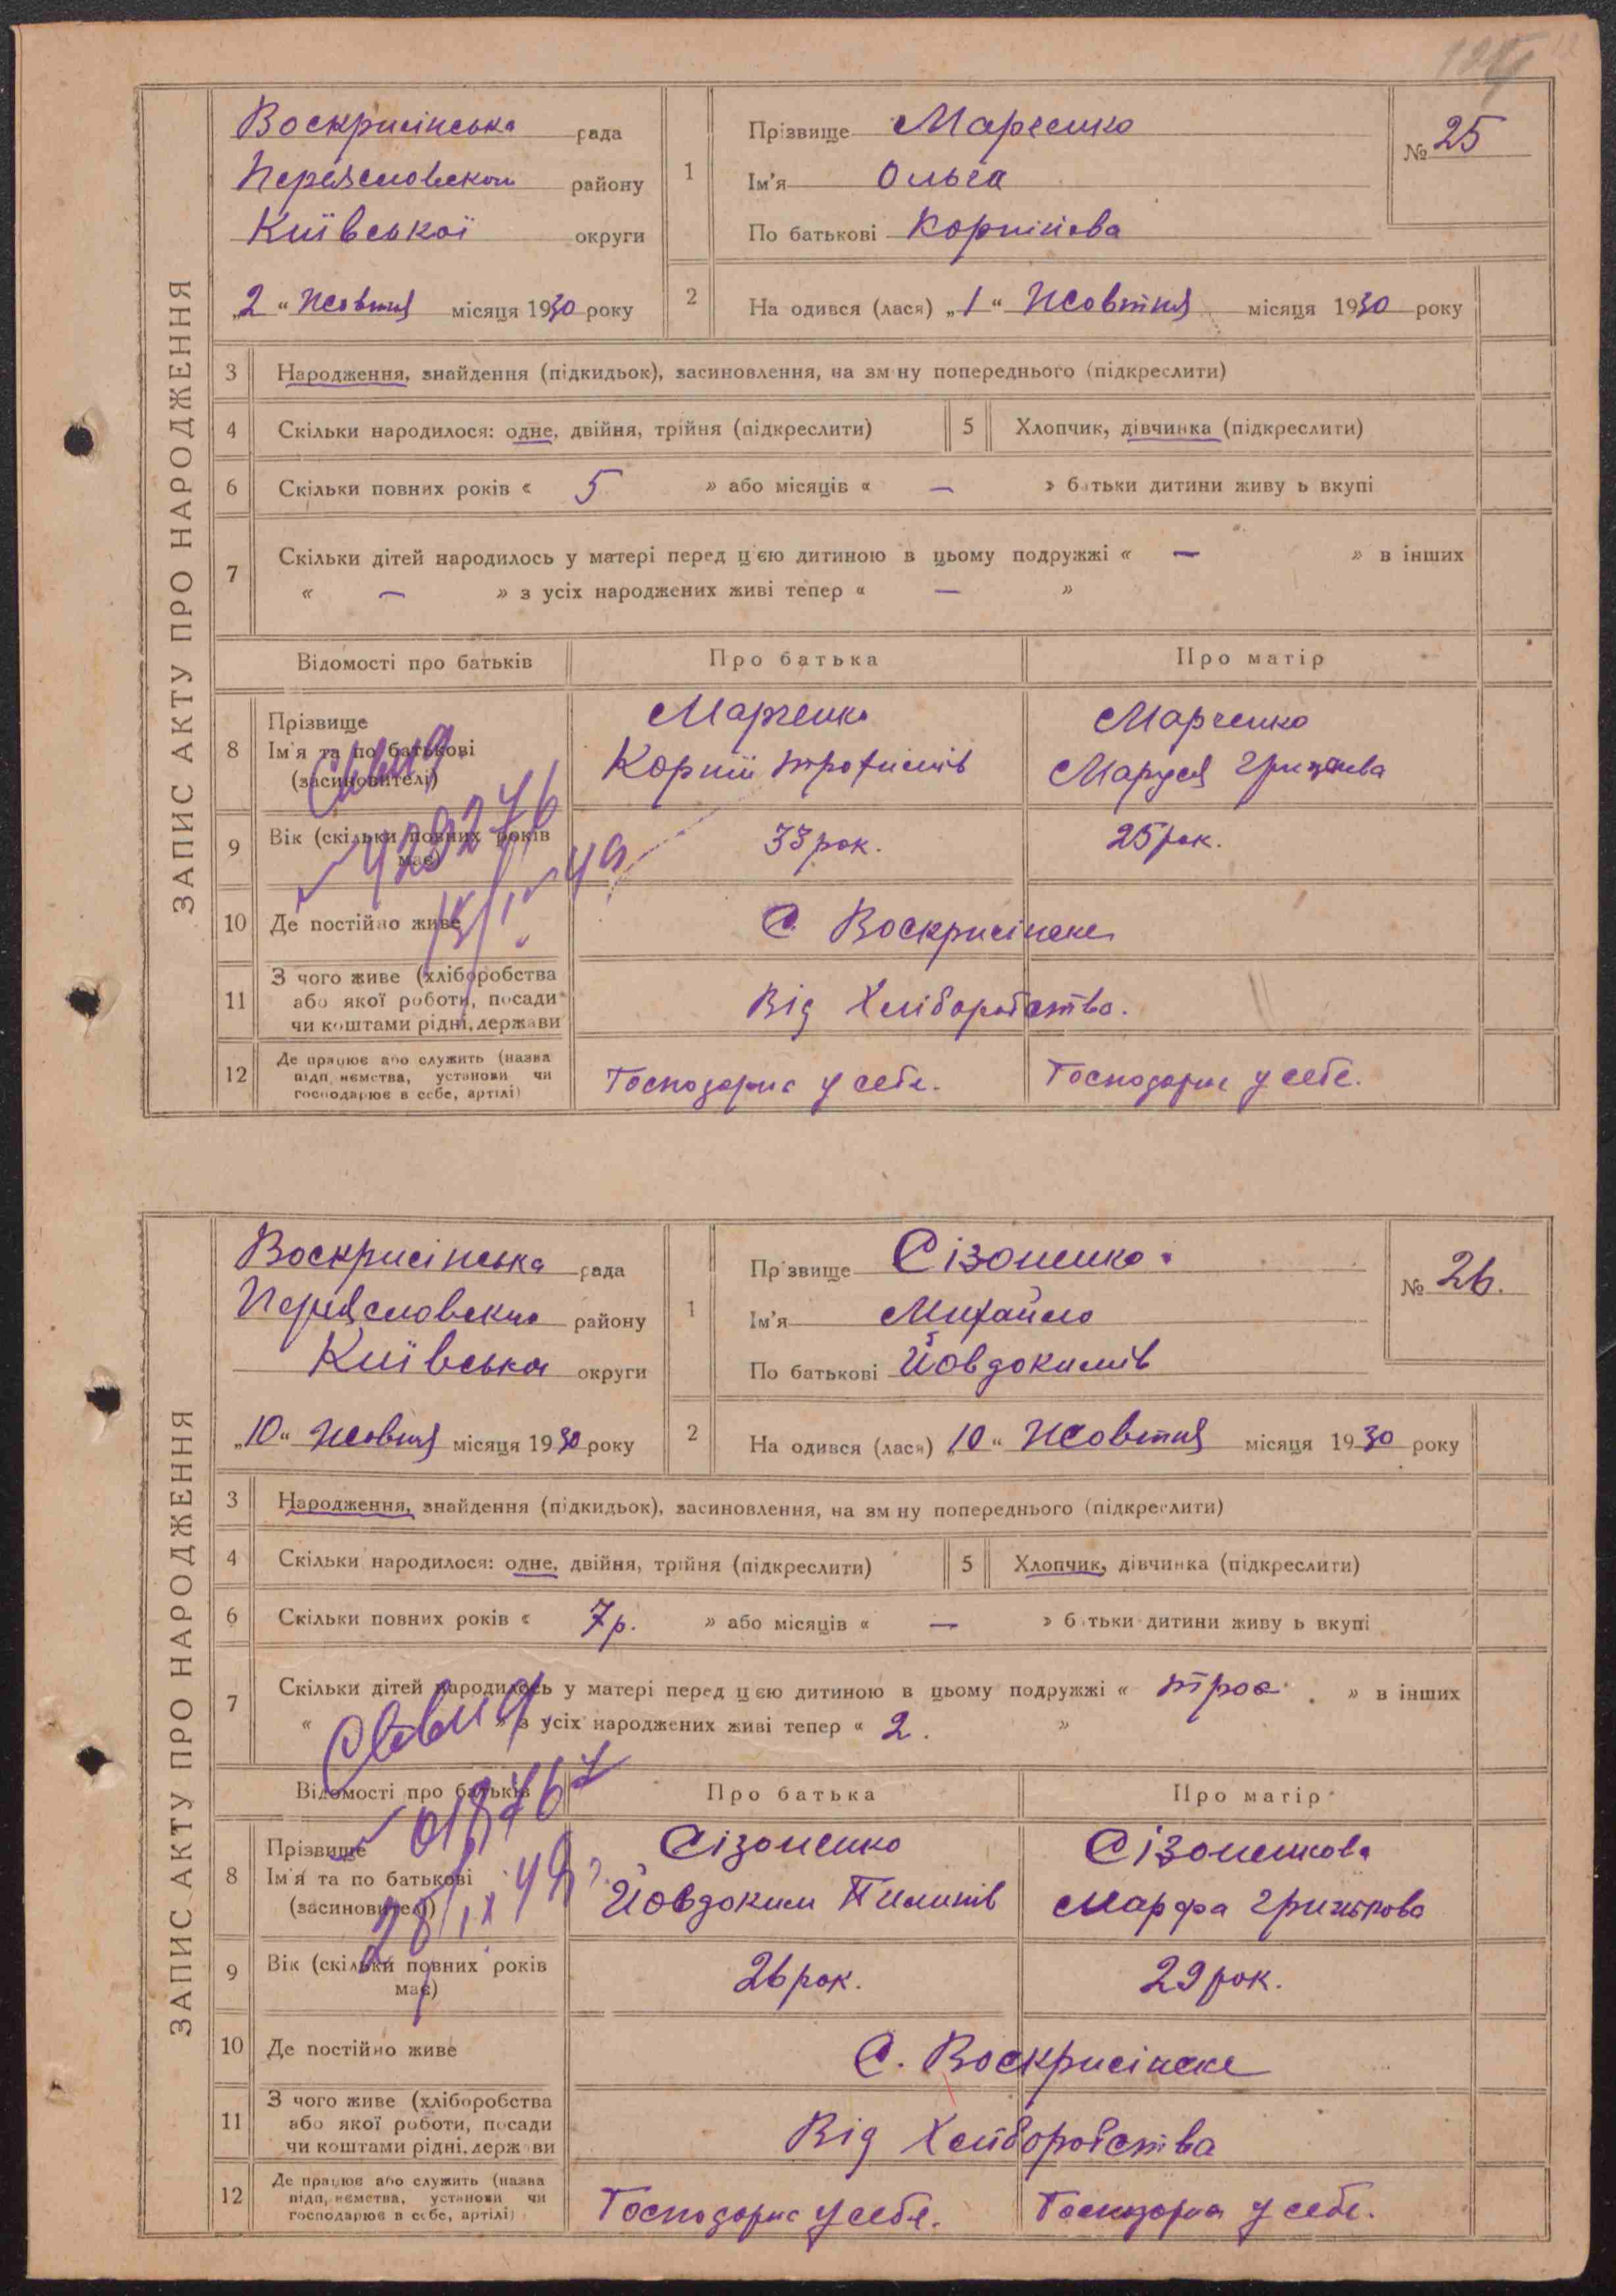 ЗАПИС АКТУ ПРО НАРОДЖЕННЯ
Воскрисінська рада
Переяславського району
Київської округи
„2“ Жовтня місяця 1930 року
1
Прізвище Марченко
Ім'я Ольга
По батькові Корніїова
№ 25
2
На одився (лася) „1“ Жовтня місяця 1930 року
3 Народження, знайдення (підкидьок), засиновлення, на зм ну попереднього (підкреслити)
4 Скільки народилося: одне, двійня, трійня (підкреслити) 5 Хлопчик, дівчинка (підкреслити)
6 Скільки повних років « 5 » або місяців « — » б тьки дитини живу ь вкупі
7 Скільки дітей народилось у матері перед ц єю дитиною в цьому подружжі « — » в інших
« — » з усіх народжених живі тепер « — »
Відомості про батьків Про батька Про матір
8 Прізвище Марченко Марченко
Ім'я та по батькові Корній Трофимів Маруся
(засиновителі)
9 Вік (скільки повних років має) 33 рок. 25 рок.
10 Де постійно живе С. Воскрисінське
11 З чого живе (хліборобства
або якої роботи, посади Від Хліборобства.
чи коштами рідні, держави
12 Де працює або служить (назва
підп, ємства, установи чи Господарює у себе. Господарює у себе.
господарює в себе, артілі)
ЗАПИС АКТУ ПРО НАРОДЖЕННЯ
Воскрисінська рада
Переяславського району
Київська округи
„10“ Жовтня місяця 1930 року
1
Пр звище Сізоненко
Ім'я Михайло
По батькові Йовдокимів
№ 26.
2
На одився (лася) „10“ Жовтня місяця 1930 року
3 Народження, знайдення (підкидьок), засиновлення, на зм ну попереднього (підкреслити)
4 Скільки народилося: одне, двійня, трійня (підкреслити) 5 Хлопчик, дівчинка (підкреслити)
6 Скільки повних років « 7 р. » або місяців « — » б тьки дитини живу ь вкупі
7 Скільки дітей народилось у матері перед ц єю дитиною в цьому подружжі « троє » в інших
« » з усіх народжених живі тепер « 2. »
Відомості про батьків Про батька Про матір
8 Прізвище Сізоненко Сізоненкова
Ім'я та по батькові Йовдоким Пилипів Марфа Гринькова
(засиновителі)
9 Вік (скільки повних років має) 26 рок. 29 рок.
10 Де постійно живе С. Воскрисінське
11 З чого живе (хліборобства
або якої роботи, посади Від Хліборобства
чи коштами рідні, держ ви
12 Де працює або служить (назва
підп, ємства, установи чи Господарює у себе. Господарює у себе.
господарює в себе, артілі)